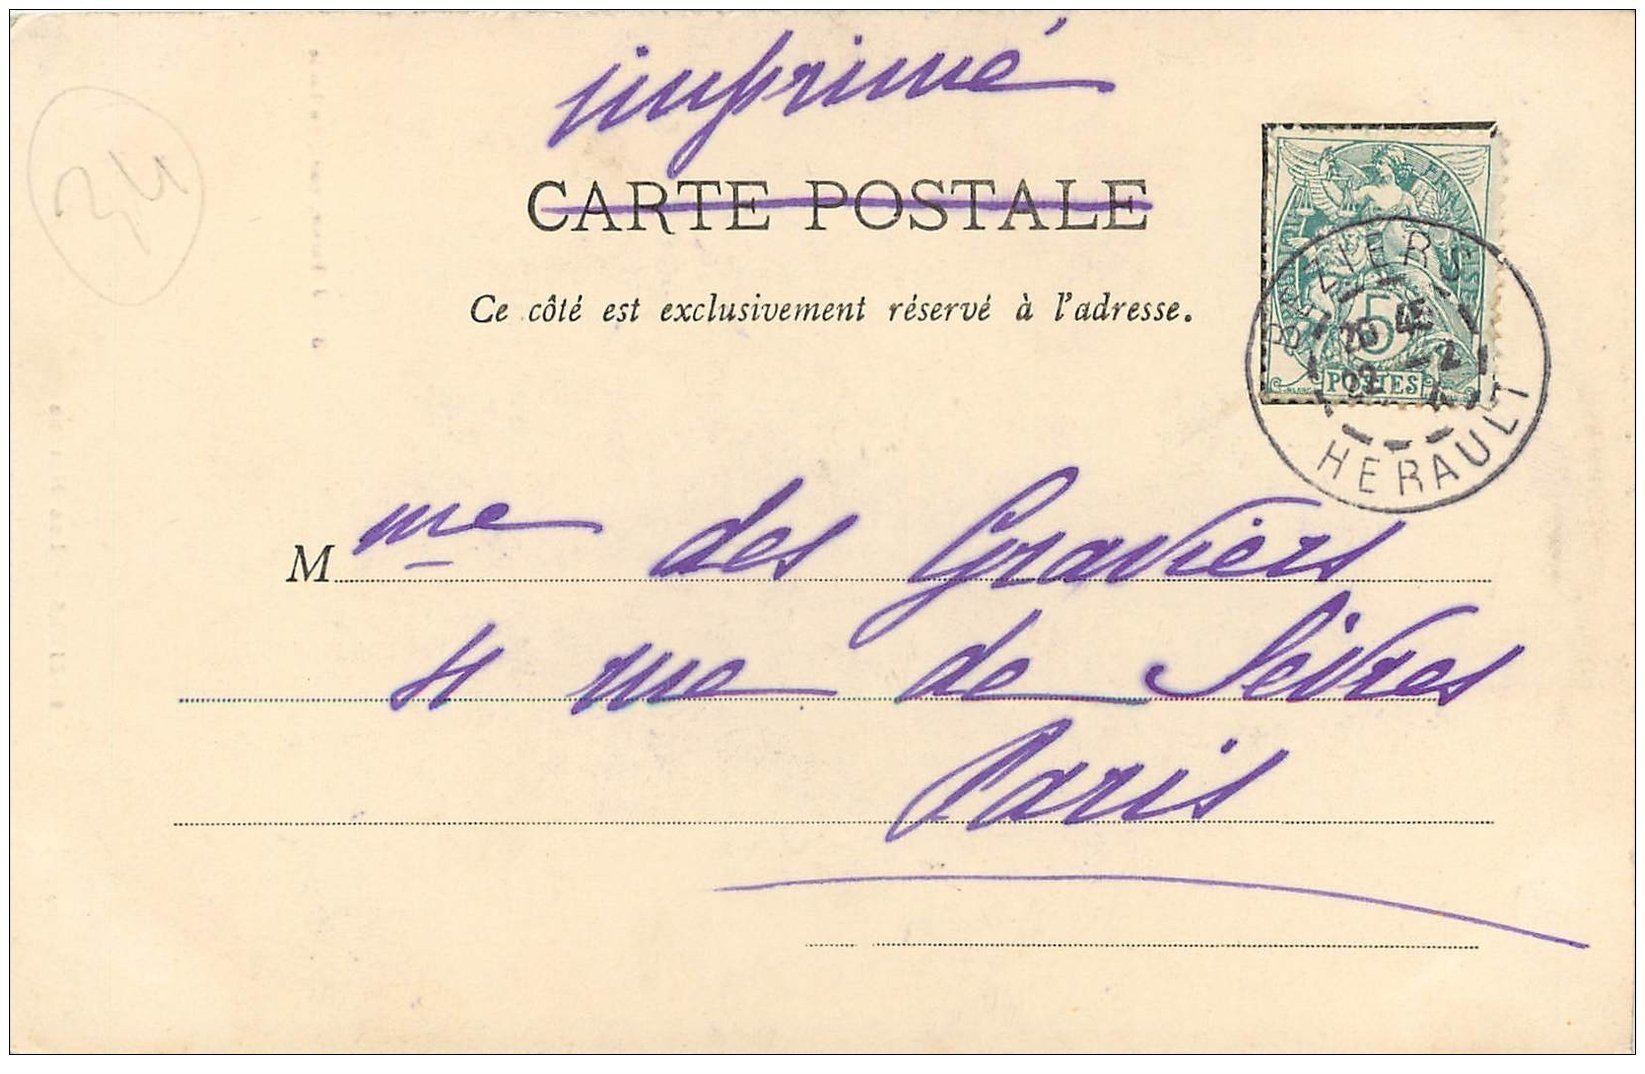 imprimé
34
CARTE POSTALE
Ce côté est exclusivement réservé à l'adresse.
5
POSTES
BEZIERS
HERAULT
Mme des Graviers
4 rue de Sèvres
Paris